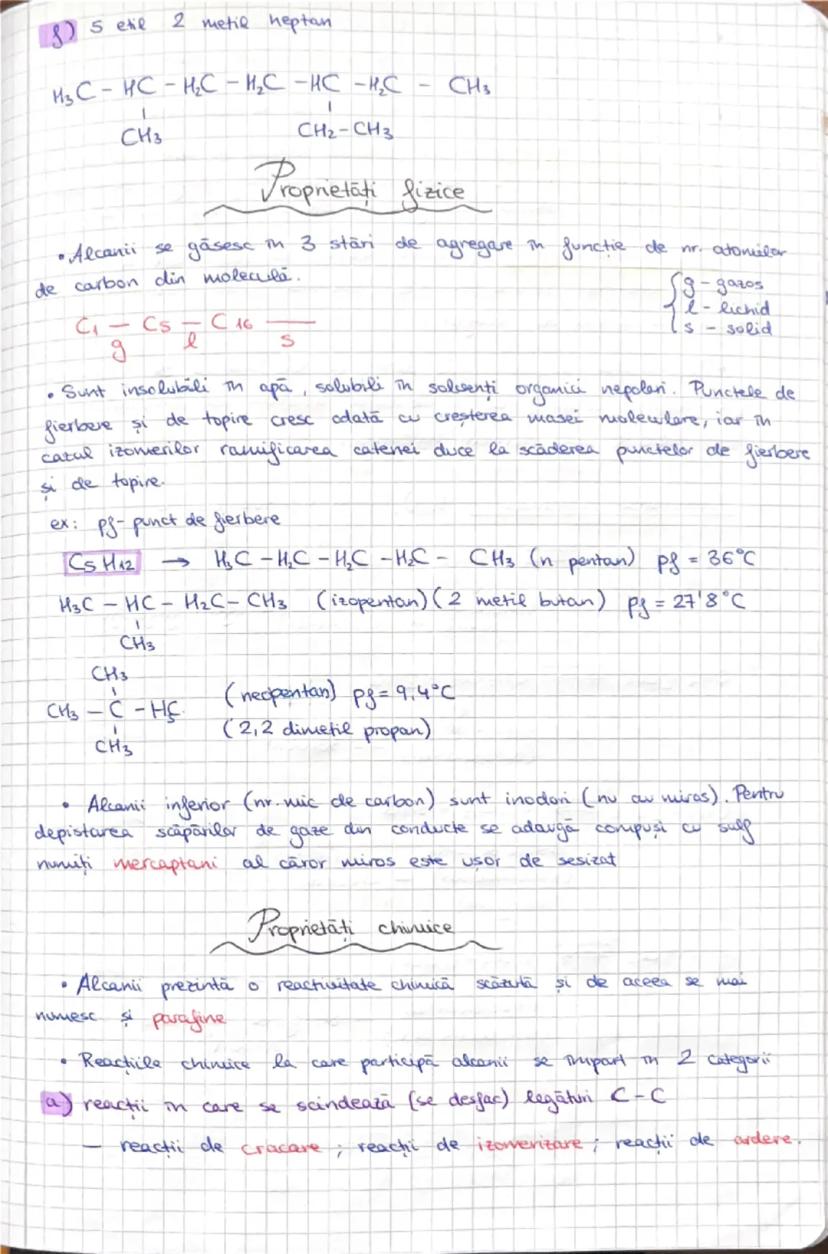 f) 5 etil 2 metil heptan
H₃C - HC - H₂C - H₂C - HC - H₂C - CH₃
CH₃ CH₂-CH₃
Proprietăți fizice
• Alcanii se găsesc în 3 stări de agregare în funcție de nr. atomilor
de carbon din moleculă.
g - gazos
l - lichid
s - solid
C₁ — C₅ — C₁₆ ——
g l s
• Sunt insolubili în apă, solubili în solvenți organici nepolari. Punctele de
fierbere și de topire cresc odată cu creșterea masei moleculare, iar în
cazul izomerilor ramificarea catenei duce la scăderea punctelor de fierbere
și de topire.
ex: pf- punct de fierbere
C₅H₁₂ → H₃C - H₂C - H₂C - H₂C - CH₃ (n pentan) pf = 36°C
H₃C - HC - H₂C - CH₃ (izopentan) (2 metil butan) pf = 27'8°C
CH₃
CH₃
CH₃ - C - H₃C (neopentan) pf = 9,4°C
CH₃ (2,2 dimetil propan)
• Alcanii inferior (nr. mic de carbon) sunt inodori (nu au miros). Pentru
depistarea scăpărilor de gaze din conducte se adaugă compuși cu sulf
numiți mercaptani al căror miros este ușor de sesizat
Proprietăți chimice
• Alcanii prezintă o reactivitate chimică scăzută și de aceea se mai
numesc și parafine
• Reacțiile chimice la care participă alcanii se împart în 2 categorii
a) reacții în care se scindează (se desfac) legături C-C
— reacții de cracare ; reacții de izomerizare ; reacții de ardere.